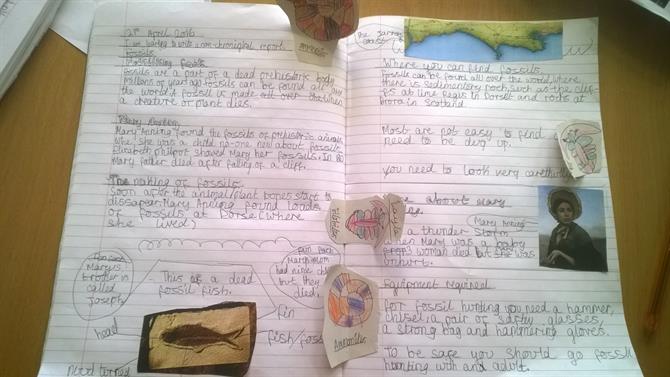 21st April 2016
I am learning to write a non-chronological report.
Fossils
Fossils are a part of a dead prehistoric body
millions of years ago. Fossils can be found all over
the world. A fossil is made when
a creature or plant dies.
Mary Anning found the fossils of prehistoric animals
she was a child no-one new about fossils.
Elizabeth Philpot showed Mary her fossils. In 1810
Mary father died after falling of a cliff.
The making of fossils
Soon after the animal/plant bones start to
dissapear. Mary Anning found loads
of fossils at Dorset (where
she lived)
Fun Fact
Mary's
brother is
called
Joseph
This is a dead
fossil fish.
Fun Fact
Mary's mom
had nine
but they
died.
head
fin
fish/foss
Need turned
Ammonite
Trilobite
Ammonite
The Jurrasic
coast
Where you can find fossils.
Fossils can be found all over the world, where
there is sedimentary rock, such as the clif-
fs at Lyme Regis in Dorset and rocks at
Brora in Scotland.
Most are not easy to find
need to be dug up.
you need to look very carefully
about mary
Mary Anning
In a thunder storm
when Mary was a baby
woman died but she was
unhurt.
Equipment required
For fossil hunting you need a hammer,
chisel, a pair of safty glasses,
a strong bag and hammering gloves.
To be safe you should go fossil
hunting with and adult.